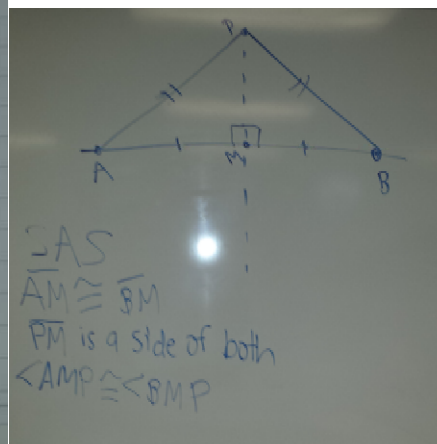 P
A
M
B
SAS
AM ≅ BM
PM is a side of both
<AMP ≅ <BMP